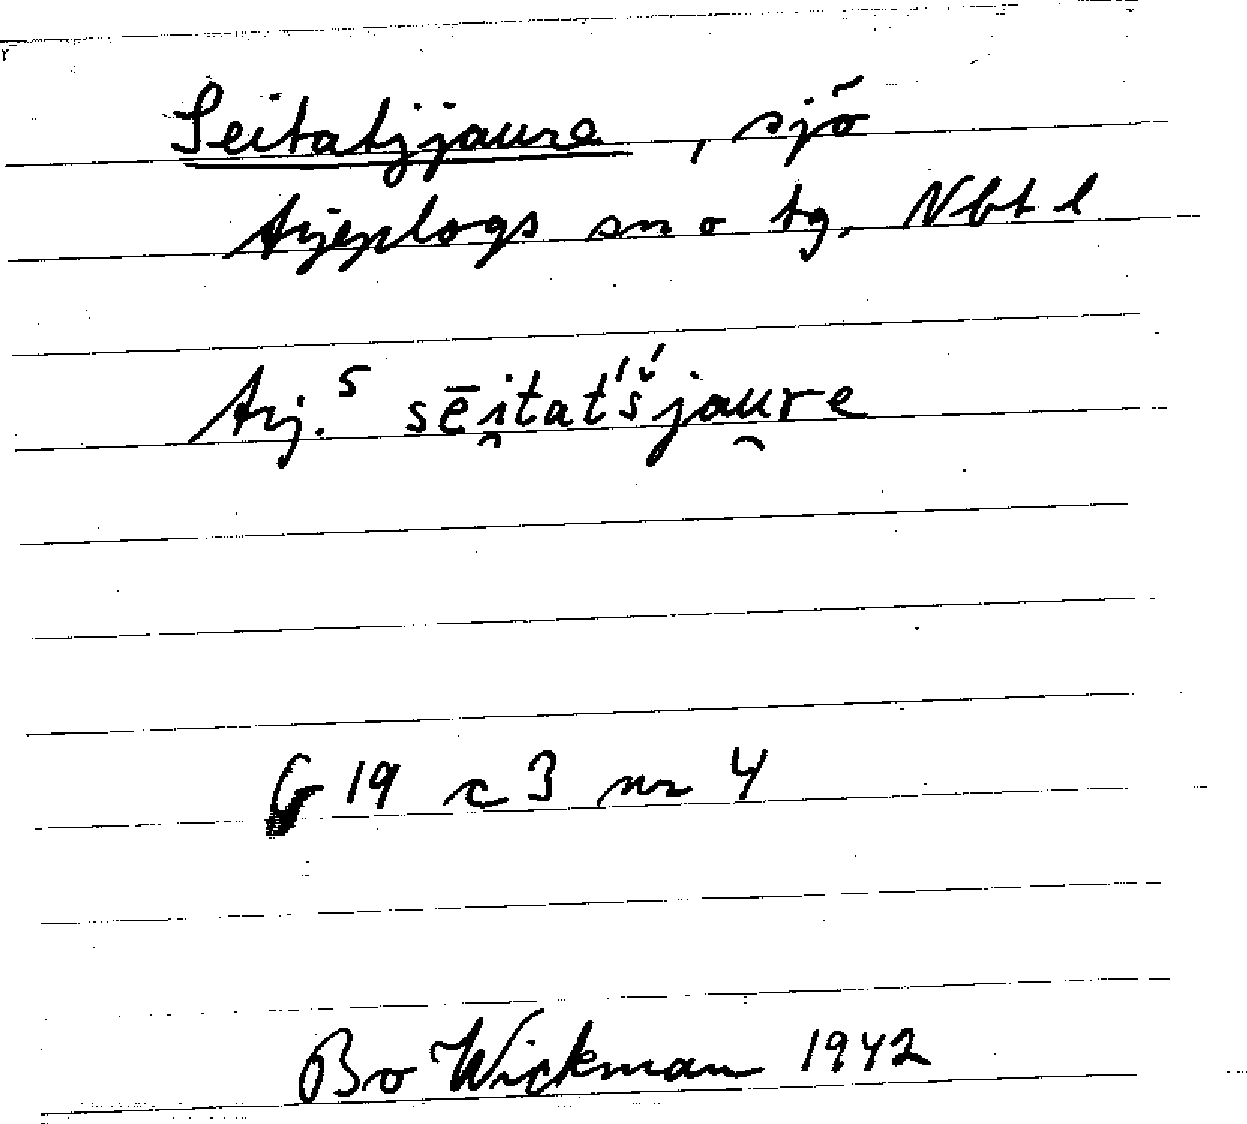 Seitatjjaure, sjö
Arjeplogs sn o tg. Nbt l
Arj.⁵ sēi̯tat'š́jau̯re
G 19 c 3 nr 4
Bo Wickman 1942